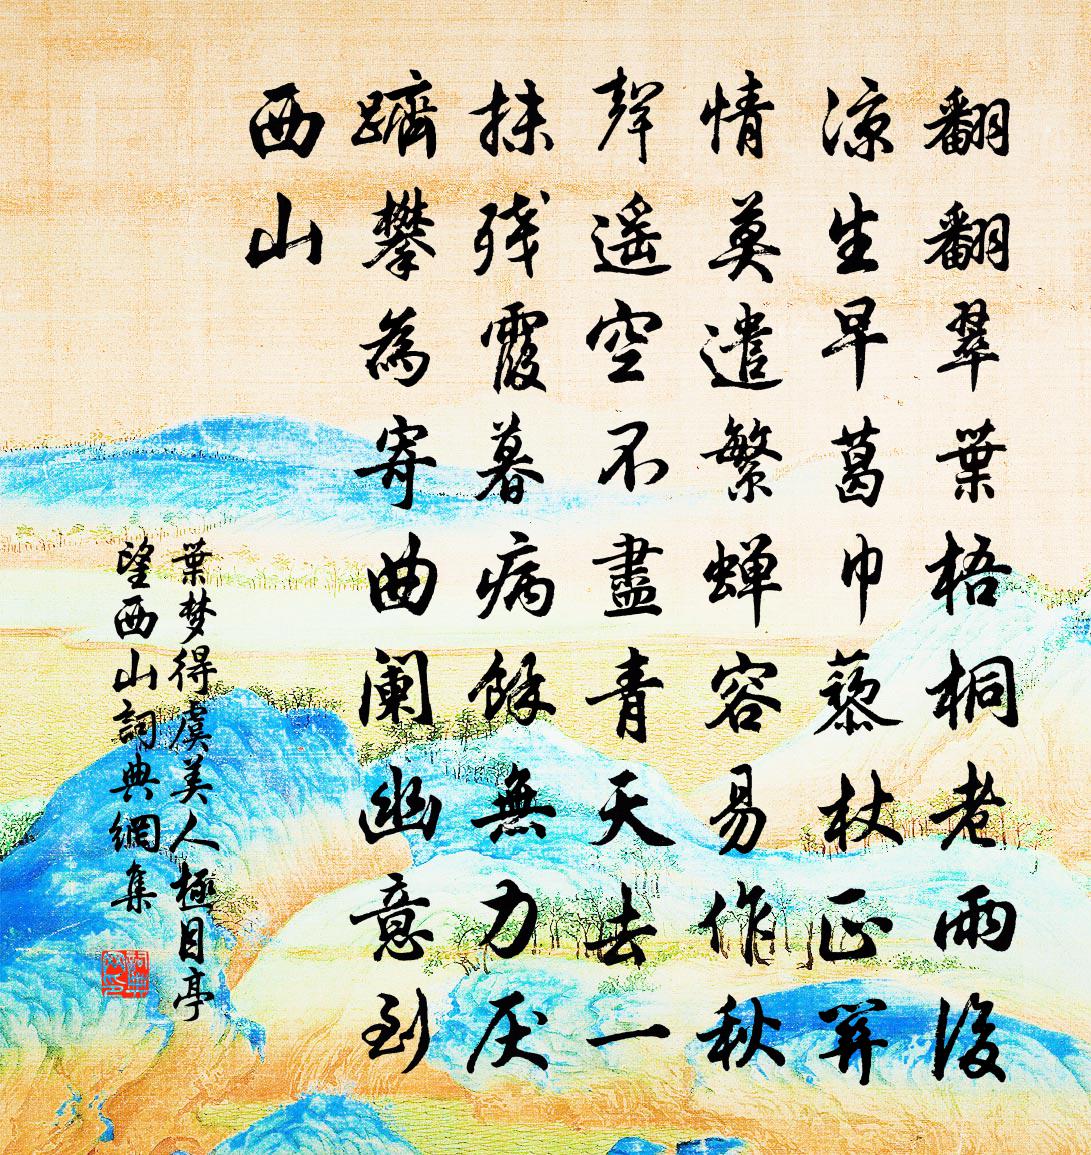 翻翻翠葉梧桐老雨後
涼生早葛巾藜杖正关
情莫遣繁蝉容易作秋
聲遥空不盡青天去一
抹残霞暮病餘無力厌
躋攀為寄曲阑幽意到
西山
葉梦得虞美人極目亭
望西山詞典網集